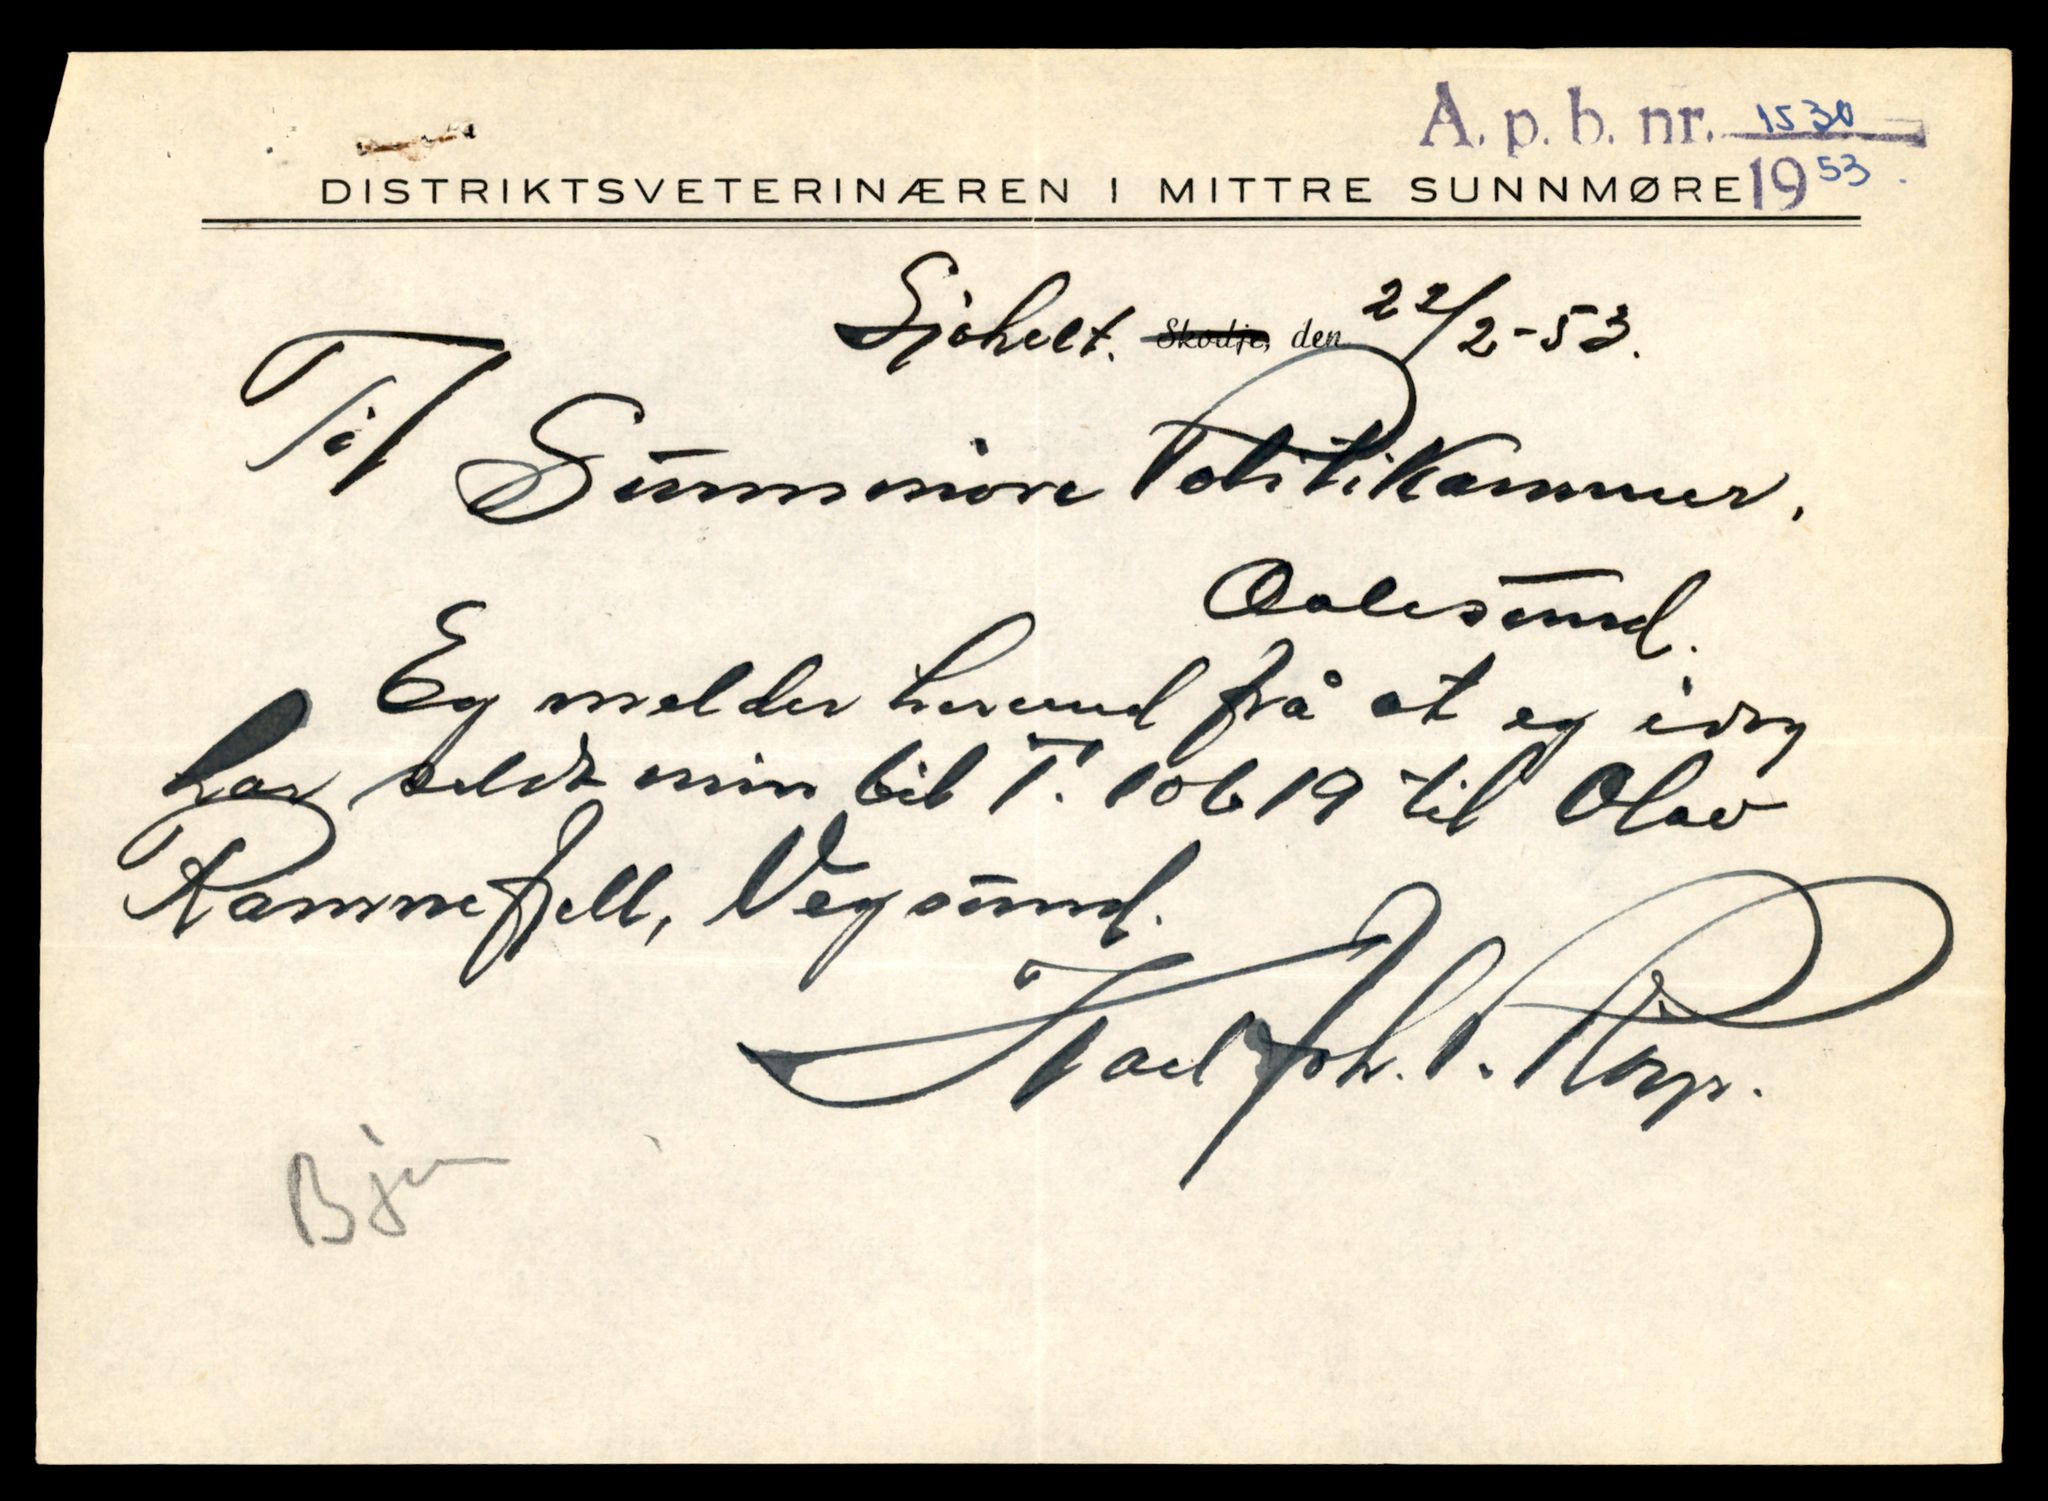 A. p. b. nr. 1530
1953.
DISTRIKTSVETERINÆREN I MITTRE SUNNMØRE
Sjøholt. Skodje, den 22/2-53.
Til Sunnmøre Politikammer,
Aalesund.
Eg melder herved frå at eg idag
har seldt min bil T. 10619 til Olav
Ramnefjell, Vegsund.
Karl Joh. P.